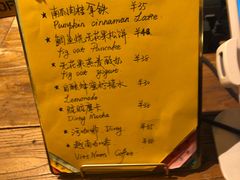 南瓜肉桂拿铁 ¥35
Pumpkin cinnamon Latte
无花果松饼 ¥48
Fig oat Pancake
无花果燕麦酸奶
Fig oat Yogurt ¥35
自制蜂蜜柠檬水 ¥30
Lemonade
脏脏摩卡 ¥35
Dirty Mocha
Dirty ¥35
越南咖啡
Viet Nam Coffee